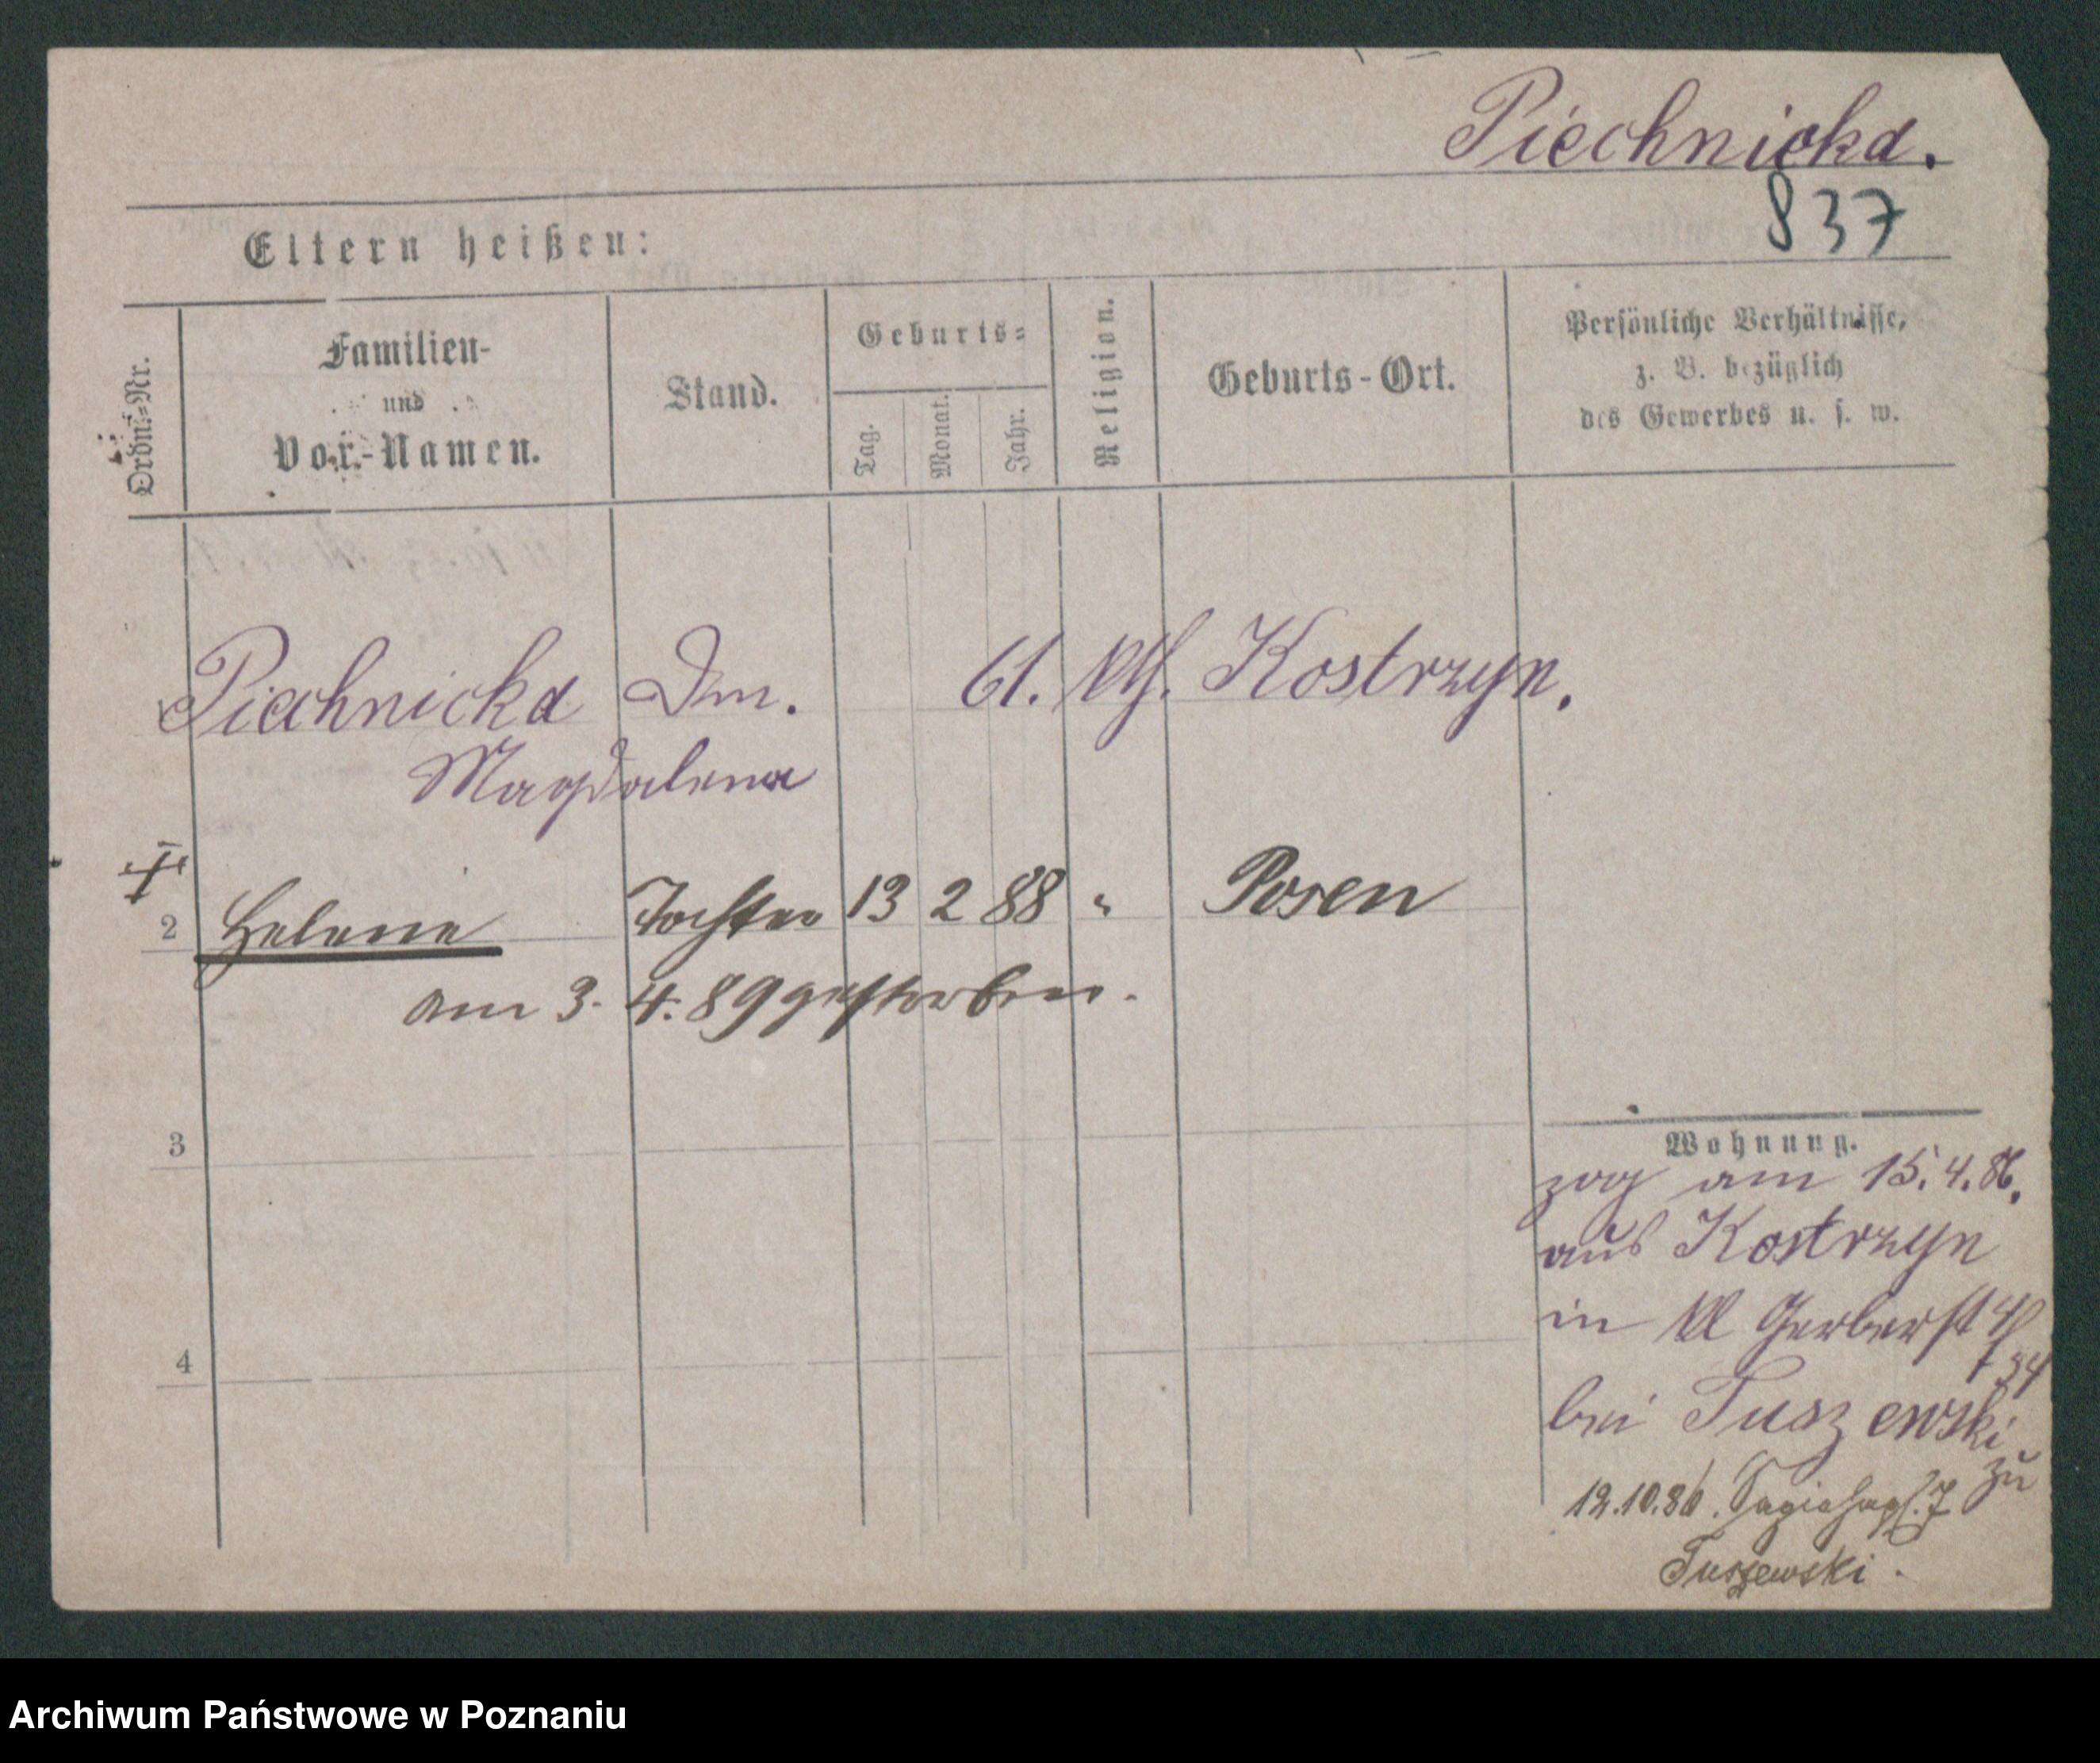 Piechnicka.
837
Eltern heißen:
Ordn.-Nr.
Familien-
und
Vor-Namen.
Stand.
Geburts-
Tag.
Monat.
Jahr.
Religion.
Geburts-Ort.
Persönliche Verhältnisse,
z. B. bezüglich
des Gewerbes u. s. w.
Piechnicka Dm. 61. kth. Kostrzyn.
Magdalena
2 Helene Tochter 13 2 88 " Posen
am 3. 4. 89 gestorben.
3
Wohnung.
zog am 15. 4. 86.
aus Kostrzyn
in kl Gerberst 4
4
bei Tuszewski
zu
12.10.86. Sapiehapl. 7
Tuszewski.
Archiwum Państwowe w Poznaniu